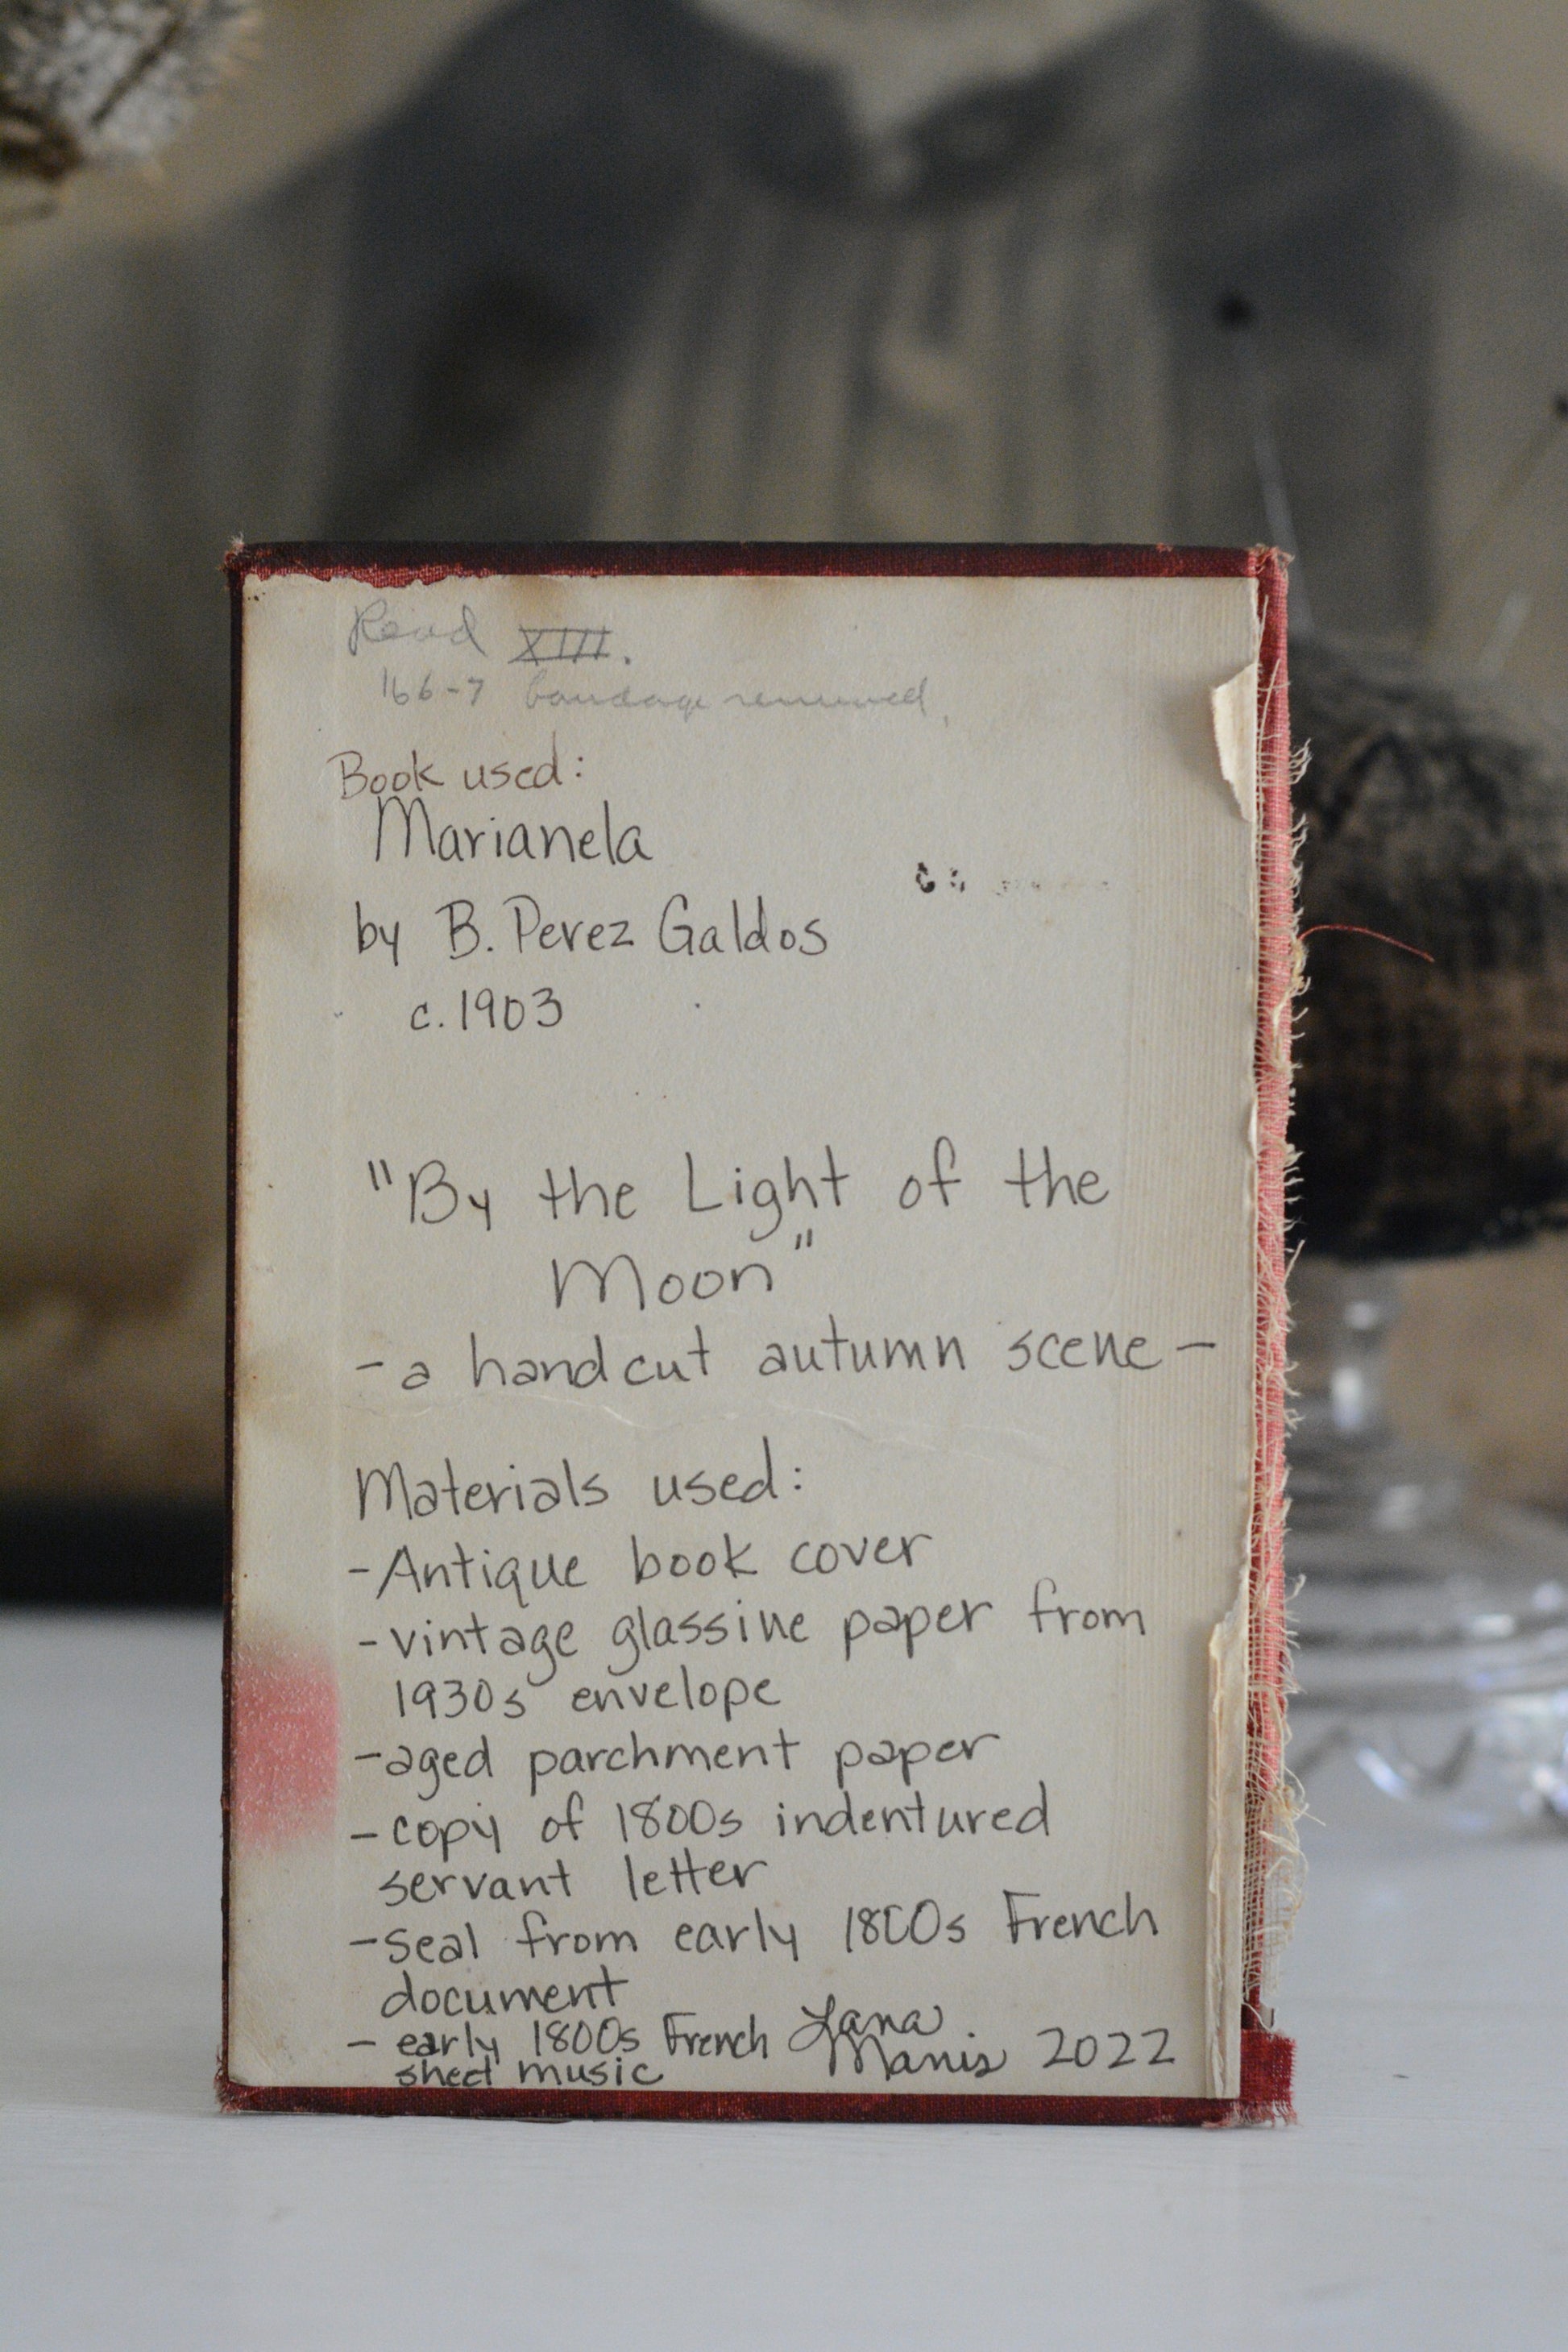 Read XIII.
166-7 bandage removed,
Book used:
Marianela
by B. Perez Galdos
c. 1903
"By the Light of the
Moon"
- a handcut autumn scene -
Materials used:
- Antique book cover
- vintage glassine paper from
1930s envelope
- aged parchment paper
- copy of 1800s indentured
servant letter
- seal from early 1800s French
document
- early 1800s French
sheet music
Lana
Manis 2022